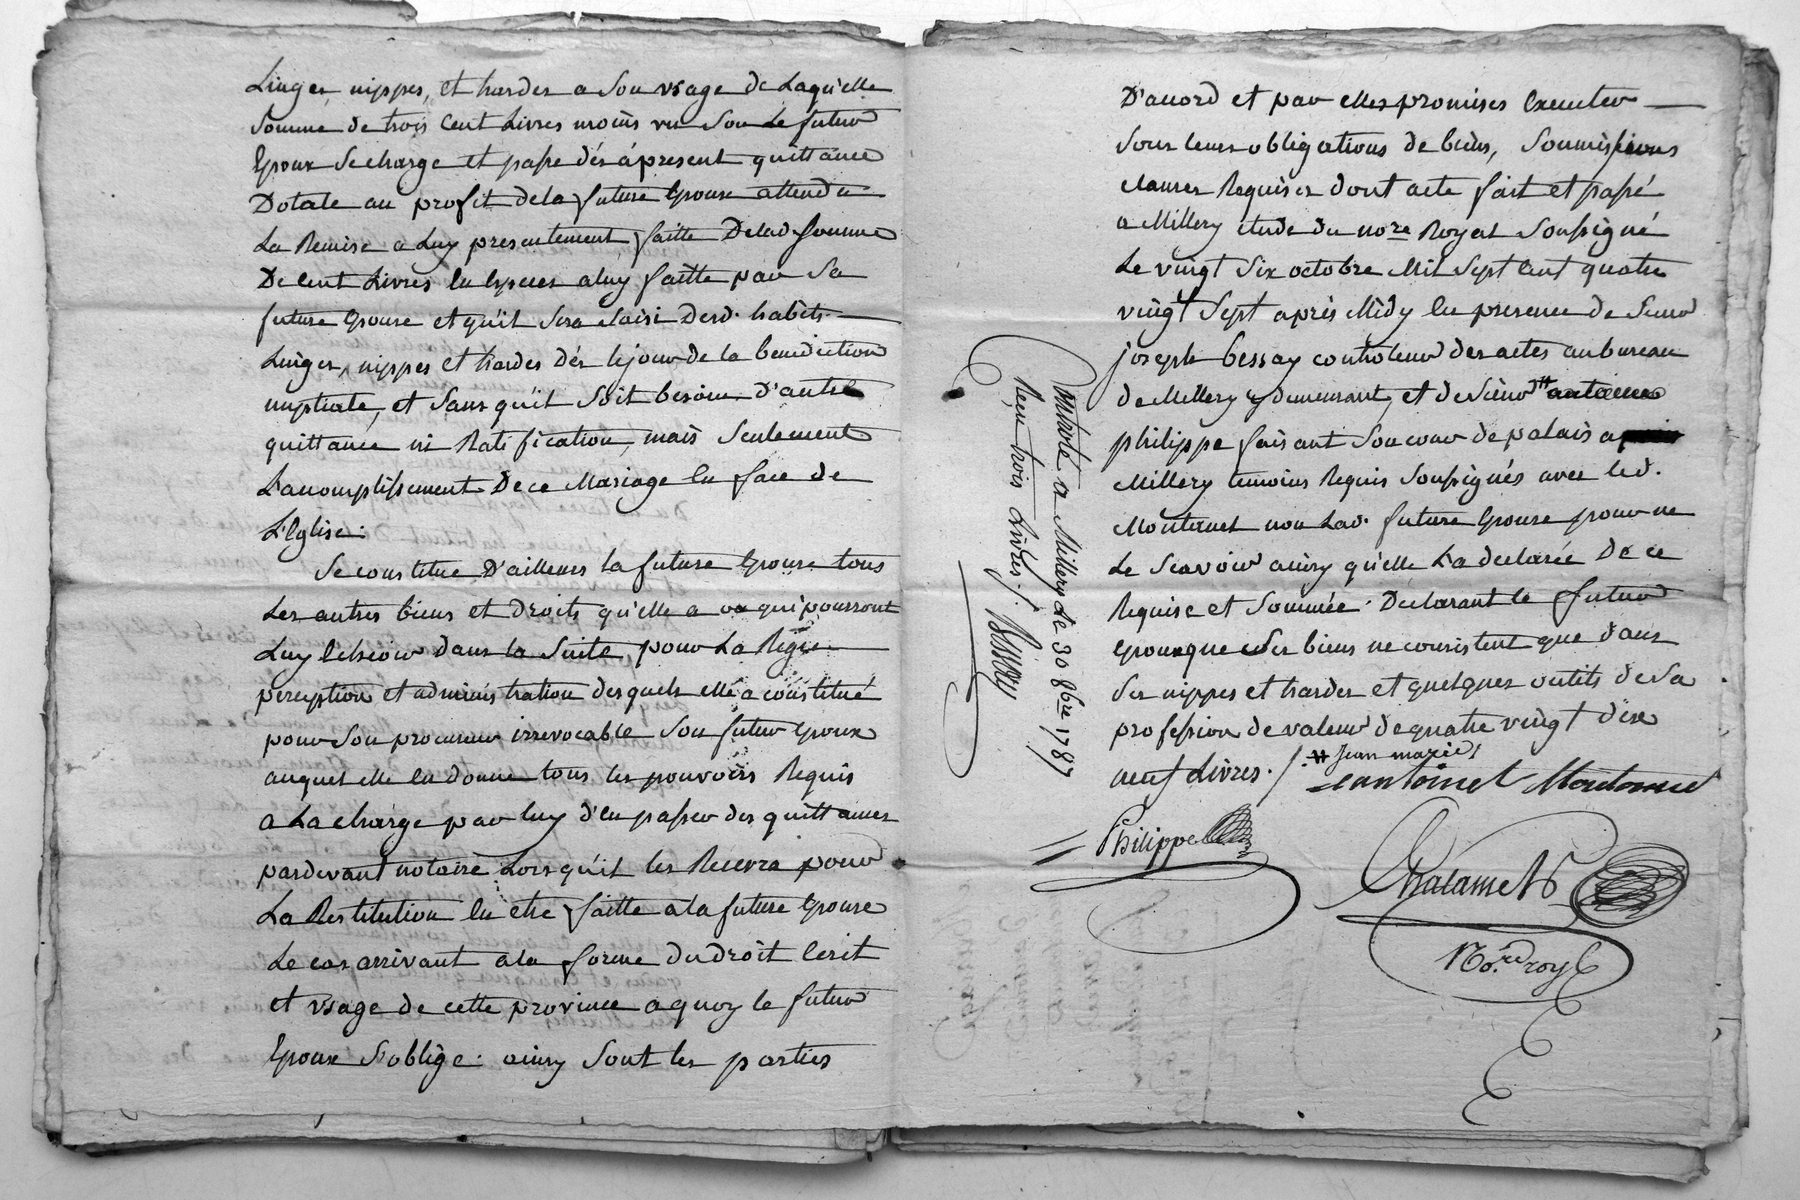 Linges, nippes, et hardes a son usage de Laquelle
Somme de trois Cent Livres moins un Sou Le futur
Epoux Se charge et passe dés ápresent quittance
Dotale au profit de la future Epouse attendu
La Remise a Luy presentement faitte Delad. Somme
De Cent Livres En Especes aluy faitte par Sa
future Epouse et qu'il Sera Saisi Desd. habits
Linges, nippes et hardes dés lejour de la benediction
nuptiale, et Sans qu'il Soit besoin D'autre
quittance ni Ratification, mais Seulement
L'acomplissement De ce Mariage En face de
L'Eglise.
Se constitue D'ailleurs la future Epouse tous
Les autres biens et droits qu'elle a ou qui pourront
Luy Echeoir dans la Suite pour La Regie
perception et administration desquels elle a constitué
pour Son procureur irrevocable Son futur Epoux
auquel elle En donne tous les pouvoirs Requis
a La charge par luy d'en passer des quittances
pardevant notaire Lorsqu'il les Recevra pour
La Restitution En etre faitte àla future Epouse
Le cas arrivant ala forme du droit Ecrit
et usage de cette province a quoy le futur
Epoux S'oblige. ainsy Sont les parties
D'acord et par elles promises Executer
Sous leurs obligations de biens, Soumissions
clauses Requises dont acte fait et passé
a Millery etude du nore. Royal Soussigné
Le vingt Six octobre Mil Sept Cent quatre
vingt Sept après Midy En presence de Sieur
joseph bessay controleur des actes au bureau
de Millery y demeurant, et de Sieur # antoine
philippe faisant Son cour de palais a
Millery temoins Requis Soussignés avec led.
Monternet non Lad. future Epouse pour ne
Le Scavoir ainsy qu'elle L'a declarée De ce
Requise et Sommée. Declarant le futur
Epouxque Ses biens ne consistent que dans
Ses nippes et hardes et quelques outils de Sa
profession de valeur de quatre vingt dix
neuf Livres. /. # Jean marie /
antoine Monternet
Philippe
Chalamel
No.re roy
Controlé a Millery Le 30 8bre 1787
Reçu trois Livres /. Bessay